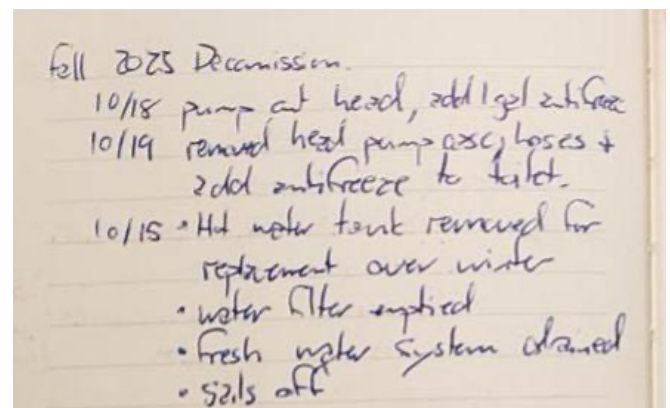 Fall 2025 Decomission.
10/18 pump out head, add 1 gal antifreeze
10/19 removed head pump assc, hoses +
add antifreeze to toilet.
10/15 • Hot water tank removed for
replacement over winter
• water filter emptied
• fresh water system drained
• sails off